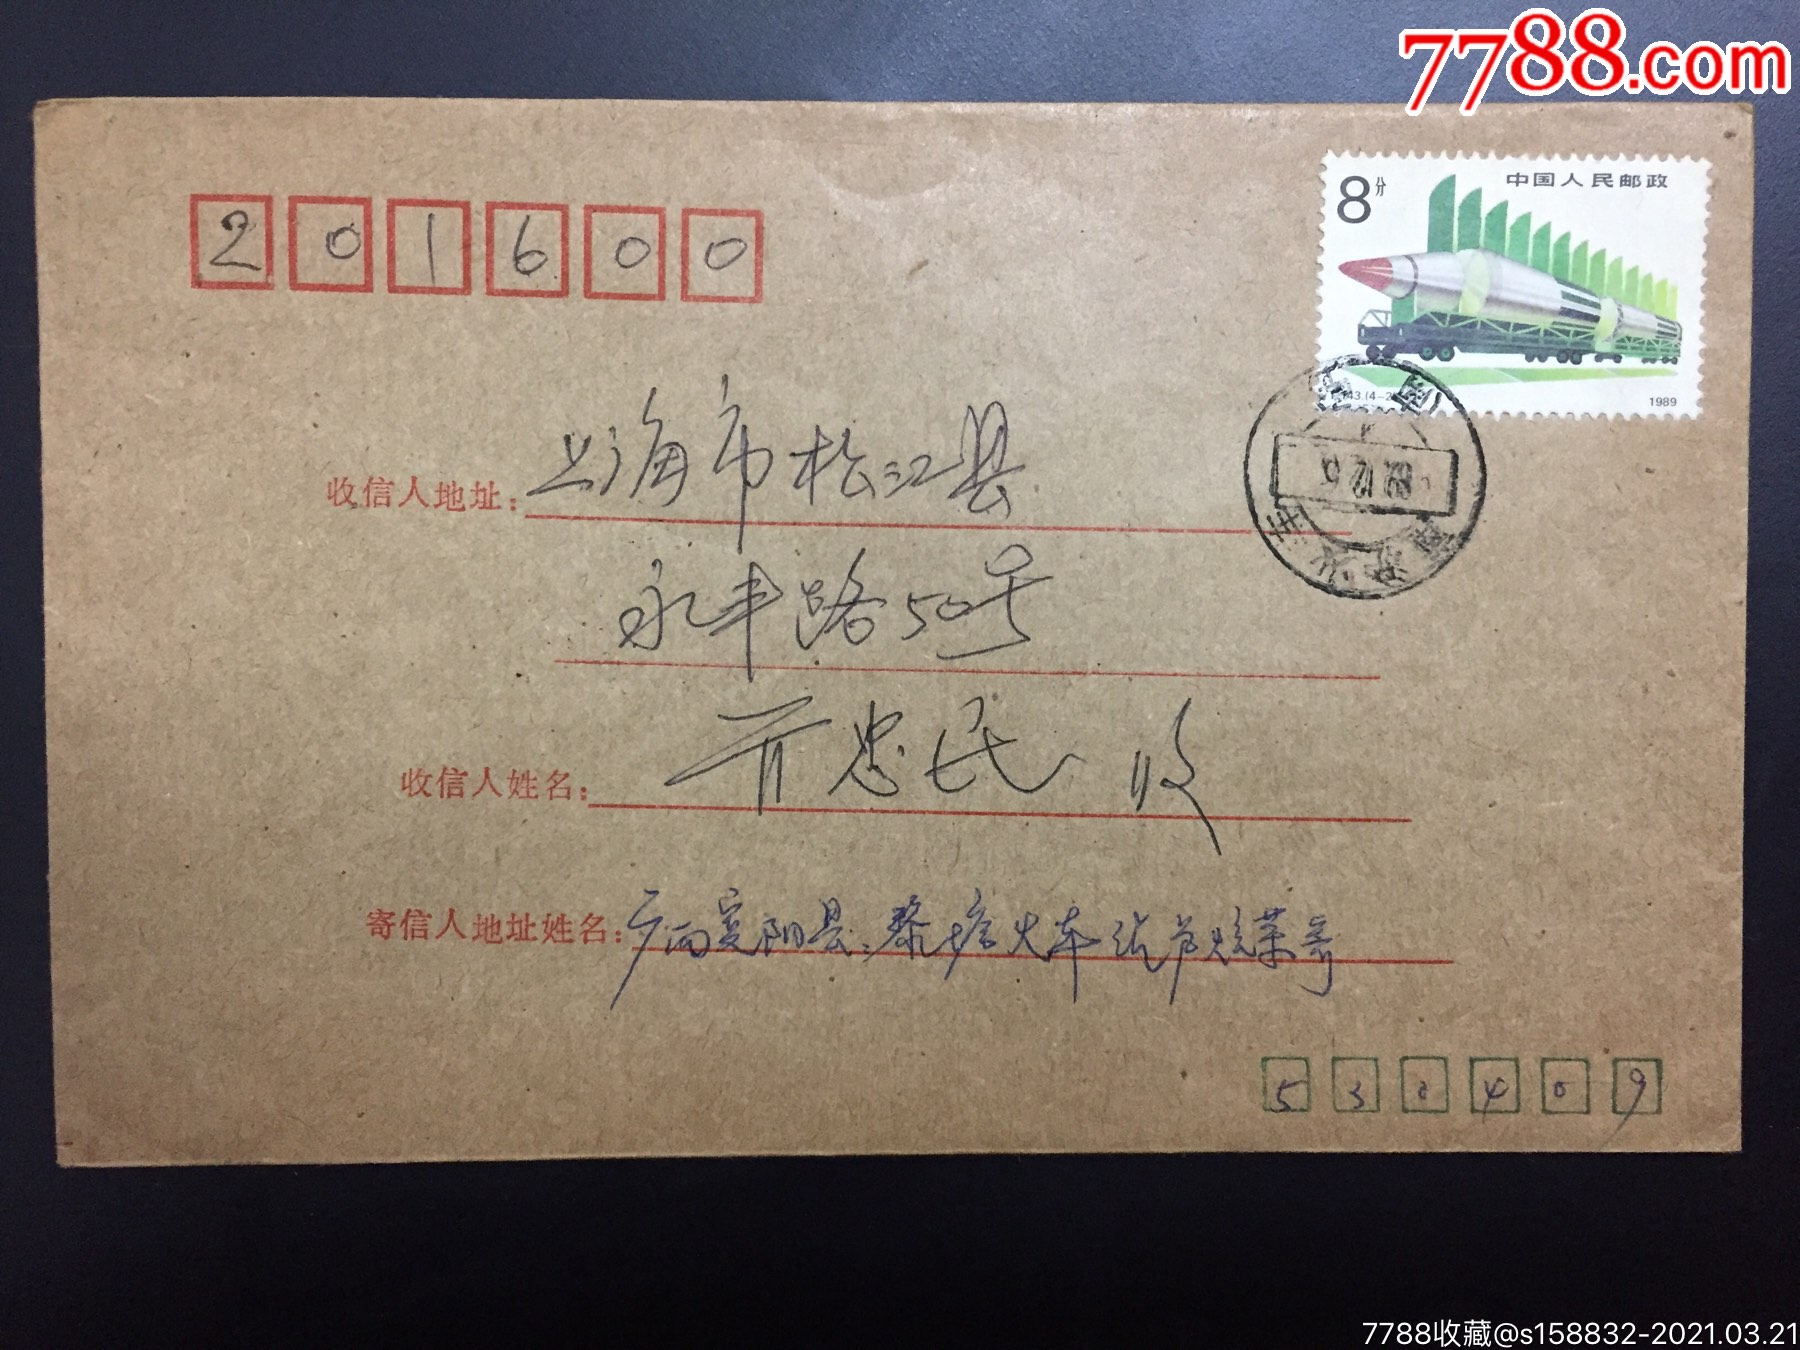 7788.com
8分
中国人民邮政
1989
201600
收信人地址:上海市松江县
永丰路50号
收信人姓名: 忠民 收
寄信人地址姓名:广西宾阳县黎塘火车站
530409
7788收藏@s158832-2021.03.21